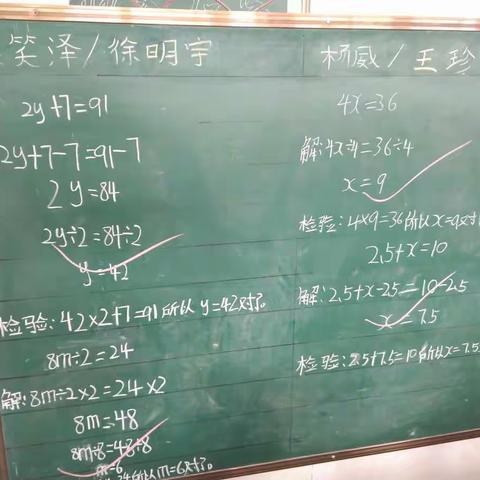 笑泽/徐明宇
2y+7=91
2y+7-7=91-7
2y=84
2y÷2=84÷2
y=42
检验:42×2+7=91所以y=42对了。
8m÷2=24
解:8m÷2×2=24×2
8m=48
8m÷8=48÷8
m=6
24所以m=6对了。
杨威/王珍
4x=36
解:4x÷4=36÷4
x=9
检验:4×9=36所以x=9对
2.5+x=10
解:2.5+x-2.5=10-2.5
x=7.5
检验:2.5+7.5=10所以x=7.5